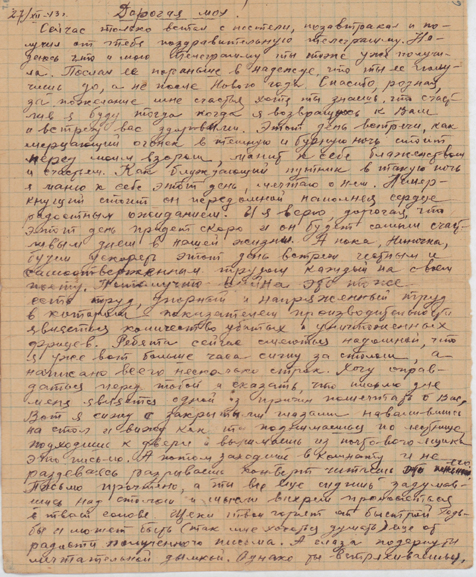 27/XII-43г. Дорогая моя.
Сейчас только встал с постели, позавтракал и по-
лучил от тебя поздравительную телеграмму. На-
деюсь что и мою телеграмму ты тоже уже получи-
ла. Послал ее пораньше в надежде, что ты ее полу-
чишь до, а не после Нового года. Спасибо, родная,
за пожелание мне счастья, хотя ты знаешь, что счаст-
лив я буду тогда когда я возвращусь к Вам
и встречу вас здоровыми. Этот день встречи, как
мерцающий огонек в темную и бурную ночь стоит
перед моим взором, манит к себе блаженством
и счастьем. Как блуждающий путник в такую ночь
я маню к себе этот день, мечтаю о нем. А
стоит он передо мной наполняя сердце
радостным ожиданием. И я верю, дорогая, что
этот день придет скоро и он будет самым счаст-
ливым днем в нашей жизни. А пока, Ниночка,
будем этот день встречи честным и
самоотверженным трудом каждый на своем
посту. война это тоже
есть труд, упорный и напряженный труд
в котором показателем производительности
является количество убитых и уничтоженных
фрицев. Ребята сейчас смеются надо мной, что
я уже вот больше часа сижу за столом, а
написано всего несколько строк. Хочу оправ-
даться перед тобой и сказать, что письмо для
меня является одной из причин помечтать о Вас.
Вот я сижу с закрытыми глазами навалившись
на стол и вижу как ты поднимаешься по лестнице
подходишь к двери и вынимаешь из почтового ящика
это письмо. А потом заходишь в комнату и не
раздеваясь разрываешь конверт читаешь
Письмо прочтено, ты все еще сидишь задумав-
шись над столом и мысли вихрем проносятся
в твоей голове. Щеки твои горят от быстрой ходь-
бы и может быть (так мне хочется думать) еще от
радости полученного письма. А глаза подернуты
мечтательной дымкой. Однако ты встряхиваешься,